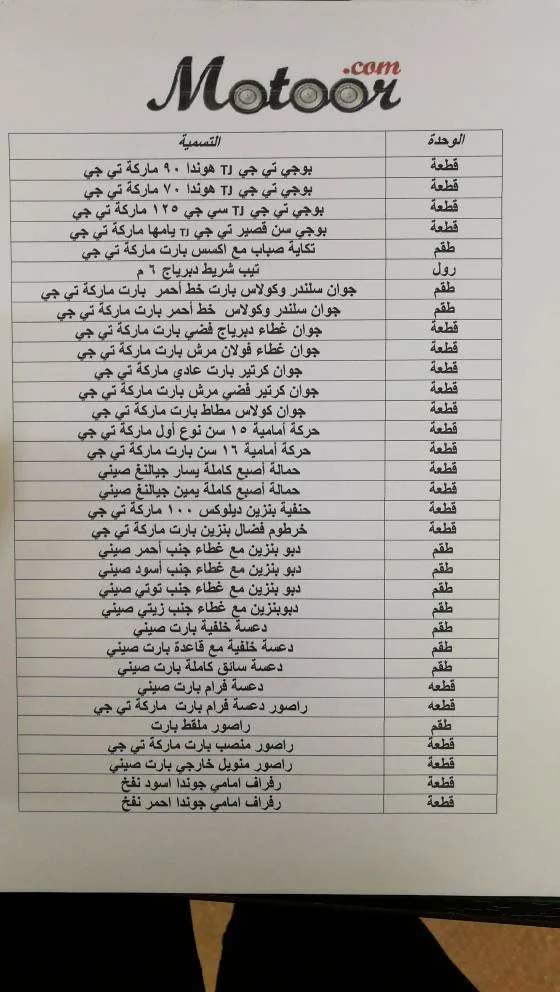 Motoor.com
الوحدة التسمية
قطعة بوجي تي جي TJ هوندا ٩٠ ماركة تي جي
قطعة بوجي تي جي TJ هوندا ٧٠ ماركة تي جي
قطعة بوجي تي جي TJ سي جي ١٢٥ ماركة تي جي
قطعة بوجي سن قصير تي جي TJ يامها ماركة تي جي
طقم تكاية صباب مع اكسس بارت ماركة تي جي
رول تيب شريط دبرياج ٦ م
طقم جوان سلندر وكولاس بارت خط أحمر بارت ماركة تي جي
طقم جوان سلندر وكولاس خط أحمر بارت ماركة تي جي
قطعة جوان غطاء دبرياج فضي بارت ماركة تي جي
قطعة جوان غطاء فولان مرش بارت ماركة تي جي
قطعة جوان كرتير بارت عادي ماركة تي جي
قطعة جوان كرتير فضي مرش بارت ماركة تي جي
قطعة جوان كولاس مطاط بارت ماركة تي جي
قطعة حركة أمامية ١٥ سن نوع أول ماركة تي جي
قطعة حركة أمامية ١٦ سن بارت ماركة تي جي
قطعة حمالة أصبع كاملة يسار جيالنغ صيني
قطعة حمالة أصبع كاملة يمين جيالنغ صيني
قطعة حنفية بنزين ديلوكس ١٠٠ ماركة تي جي
قطعة خرطوم فضال بنزين بارت ماركة تي جي
طقم دبو بنزين مع غطاء جنب أحمر صيني
طقم دبو بنزين مع غطاء جنب أسود صيني
طقم دبو بنزين مع غطاء جنب توتي صيني
طقم دبوبنزين مع غطاء جنب زيتي صيني
طقم دعسة خلفية بارت صيني
طقم دعسة خلفية مع قاعدة بارت صيني
طقم دعسة سائق كاملة بارت صيني
قطعه دعسة فرام بارت صيني
قطعه راصور دعسة فرام بارت ماركة تي جي
طقم راصور ملقط بارت
قطعة راصور منصب بارت ماركة تي جي
قطعة راصور منويل خارجي بارت صيني
قطعة رفراف امامي جوندا اسود نفخ
قطعة رفراف امامي جوندا احمر نفخ